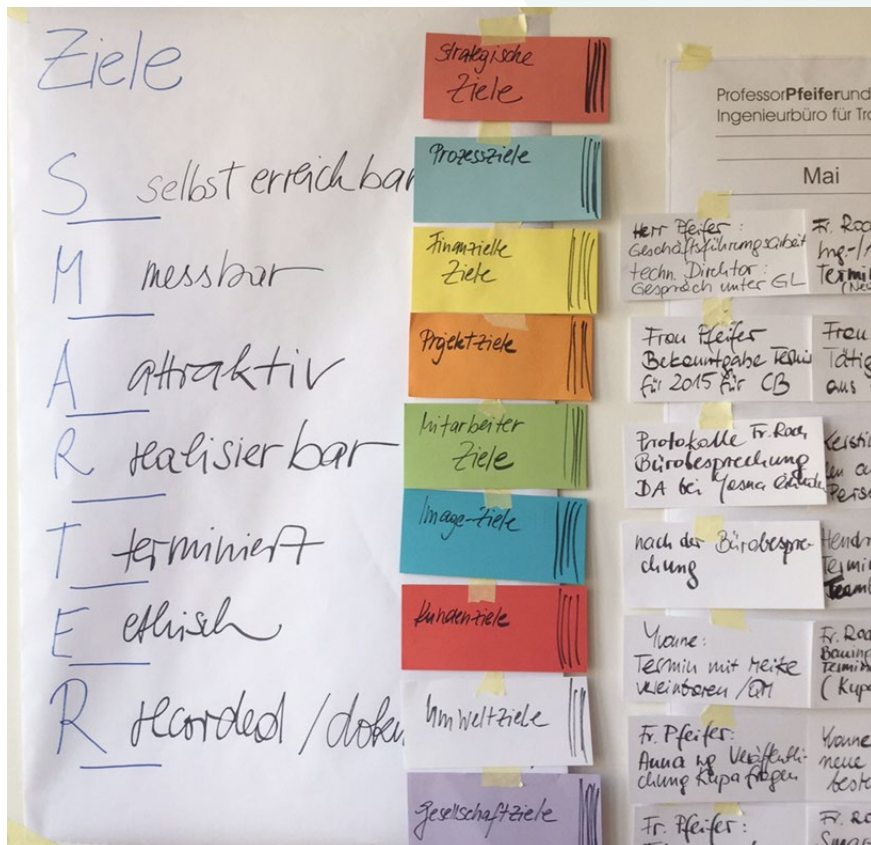 Ziele
S selbst erreichbar
M messbar
A attraktiv
R realisierbar
T terminiert
E ethisch
R recorded / doku
Strategische
Ziele
Prozessziele
Finanzielle
Ziele
Projektziele
Mitarbeiter
Ziele
Image-Ziele
Kundenziele
Umweltziele
Gesellschaftziele
ProfessorPfeiferund
Ingenieurbüro für Tra
Mai
Herr Pfeifer:
Geschäftsführungsarbeit
techn. Direktor:
Gespräch unter GL
Fr. Roch
Ing.-/
Termin
(Neu
Frau Pfeifer
Bekanntgabe Termin
für 2015 für CB
Frau
Tätig
aus
Protokolle Fr. Roch
Bürobesprechung
DA bei Yosna
Kerstin
Perso
nach der Bürobespre-
chung
Hendr
Termin
Teamb
Yvonne:
Termin mit Heike
vereinbaren /QM
Fr. Roc
Termin
(Kupa
Fr. Pfeifer:
Anna wg Veröffentli-
chung Kupa fragen
Yvonne
neue
beste
Fr. Pfeifer:
Fr. Ro
Smar